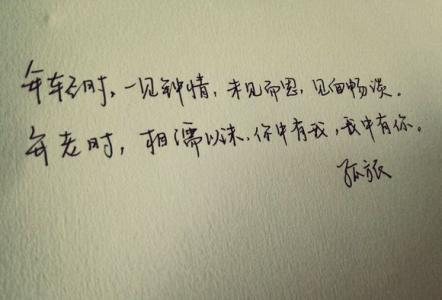 年轻时，一见钟情，未见而思，见面畅谈。
年老时，相濡以沫，你中有我，我中有你。
孤旅